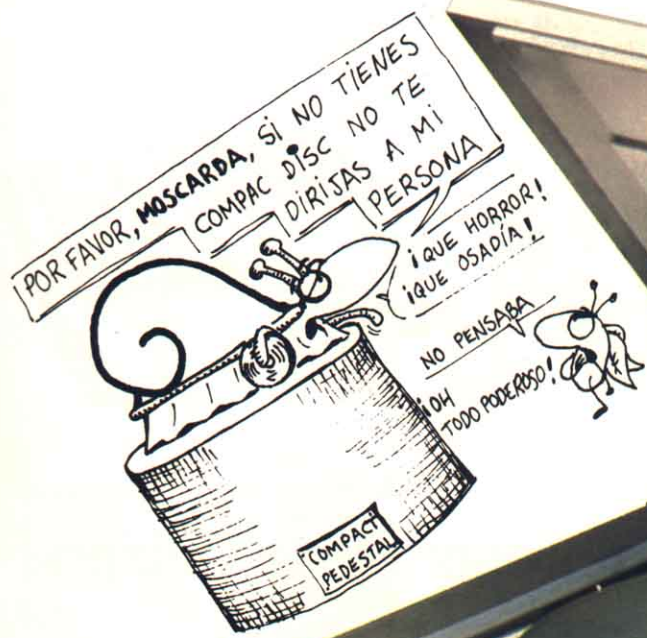 POR FAVOR, MOSCARDA, SI NO TIENES
COMPAC DISC NO TE
DIRIJAS A MI
PERSONA
¡QUE HORROR!
¡QUE OSADÍA!
NO PENSABA
¡OH
TODO PODEROSO!
COMPACT
PEDESTAL